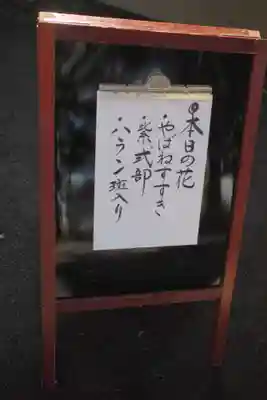 本日の花
・やばねすすき
・紫式部
・ハラン斑入り